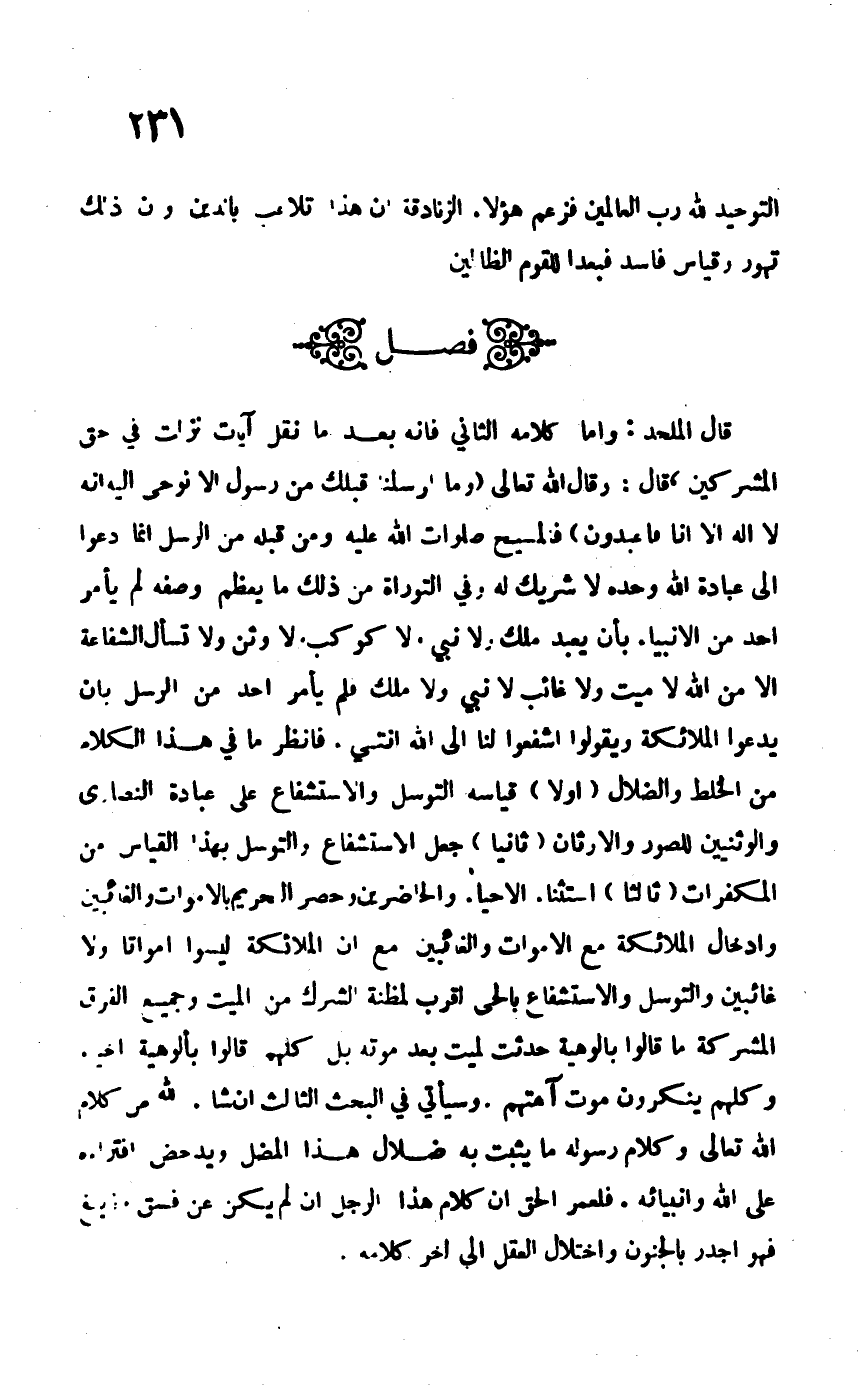 ٢٣١
التوحيد لله رب العالمين فزعم هؤلاء الزنادقة ان هذا تلاعب بالدين وان ذلك
تهور وقياس فاسد فبعدا للقوم الظالمين
فصــل
قال الملحد : واما كلامه الثاني فانه بعــد ما نقل آيات نزلت في حق
المشركين قال : وقال الله تعالى (وما ارسلنا قبلك من رسول الا نوحى اليه انه
لا اله الا انا فاعبدون) فالمسيح صلوات الله عليه ومن قبله من الرسل انما دعوا
الى عبادة الله وحده لا شريك له وفي التوراة من ذلك ما يعظم وصفه لم يأمر
احد من الانبياء بأن يعبد ملك ولا نبي ولا كوكب ولا وثن ولا تسأل الشفاعة
الا من الله لا ميت ولا غائب لا نبي ولا ملك فلم يأمر احد من الرسل بان
يدعوا الملائكة ويقولوا اشفعوا لنا الى الله انتهى . فانظر ما في هــذا الكلام
من الخلط والضلال ( اولا ) قياسه التوسل والاستشفاع على عبادة النصارى
والوثنيين للصور والاوثان ( ثانيا ) جعل الاستشفاع والتوسل بهذا القياس من
المكفرات ( ثالثا ) استثناء الاحياء والحاضرين وحصر التحريم بالاموات والغائبين
وادخال الملائكة مع الاموات والغائبين مع ان الملائكة ليسوا امواتا ولا
غائبين والتوسل والاستشفاع بالحي اقرب لمظنة الشرك من الميت وجميع الفرق
المشركة ما قالوا بالوهية حدثت لميت بعد موته بل كلهم قالوا بألوهية احياء
وكلهم ينكرون موت آلهتهم . وسيأتي في البحث الثالث انشاء الله من كلام
الله تعالى وكلام رسوله ما يثبت به ضــلال هــذا المضل ويدحض افتراءه
على الله وانبيائه . فلعمر الحق ان كلام هذا الرجل ان لم يكن عن فسق وزيغ
فهو اجدر بالجنون واختلال العقل الى اخر كلامه .